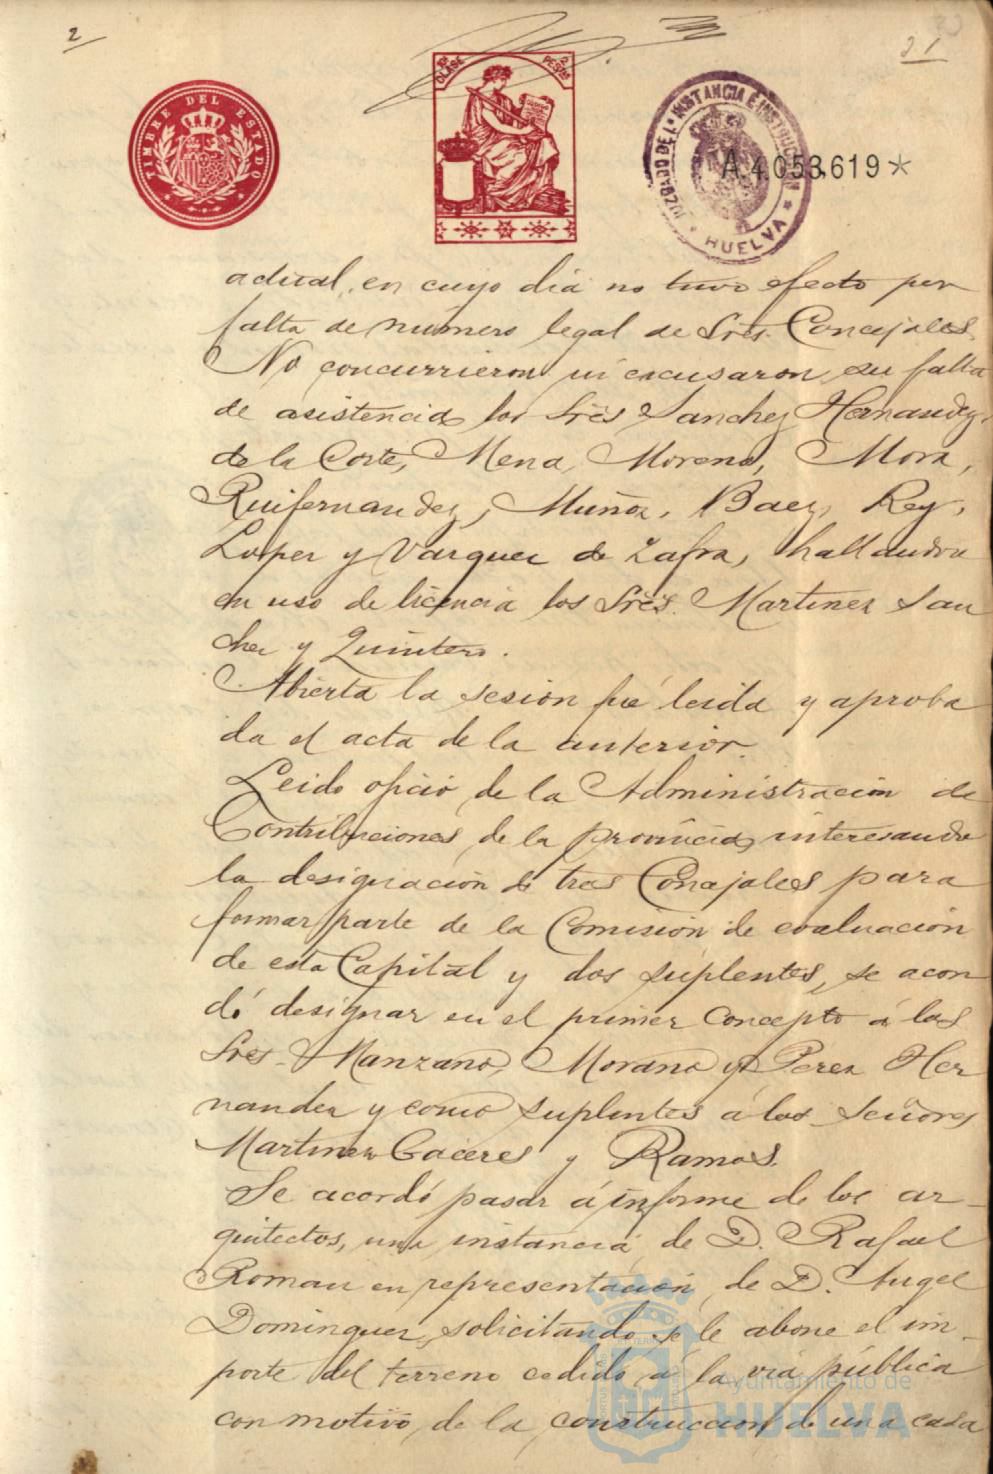 2
31
TIMBRE DEL ESTADO
10ª CLASE
2 PESTAS
JUZGADO DE 1ª INSTANCIA E INSTRUCCION
* HUELVA *
A.4.053.619*
actual, en cuyo dia no tuvo efecto por
falta de número legal de Sres. Concejales.
No concurrieron ni excusaron su falta
de asistencia los Sres Sanchez Hernandez,
de la Corte, Mena, Moreno, Mora,
Ruifernandez, Muñoz, Baez, Rey,
Lopez y Vazquez de Zafra, hallandose
en uso de licencia los Sres. Martinez San
chez y Quintero.
Abierta la sesión fué leida y aproba
da el acta de la anterior.
Leido oficio de la Administración de
Contribuciones de la provincia, interesando
la designación de tres Concejales para
formar parte de la Comisión de evaluación
de esta Capital y dos suplentes, se acor
dó designar en el primer concepto á los
Sres. Manzano, Morano y Perez Her
nandez y como suplentes á los señores
Martinez Caceres y Ramos.
Se acordó pasar á informe de los ar-
quitectos, una instancia de D. Rafael
Roman en representación de D. Angel
Dominguez, solicitando se le abone el im-
porte del terreno cedido á la via pública
con motivo de la construccion de una casa
Ayuntamiento de
HUELVA